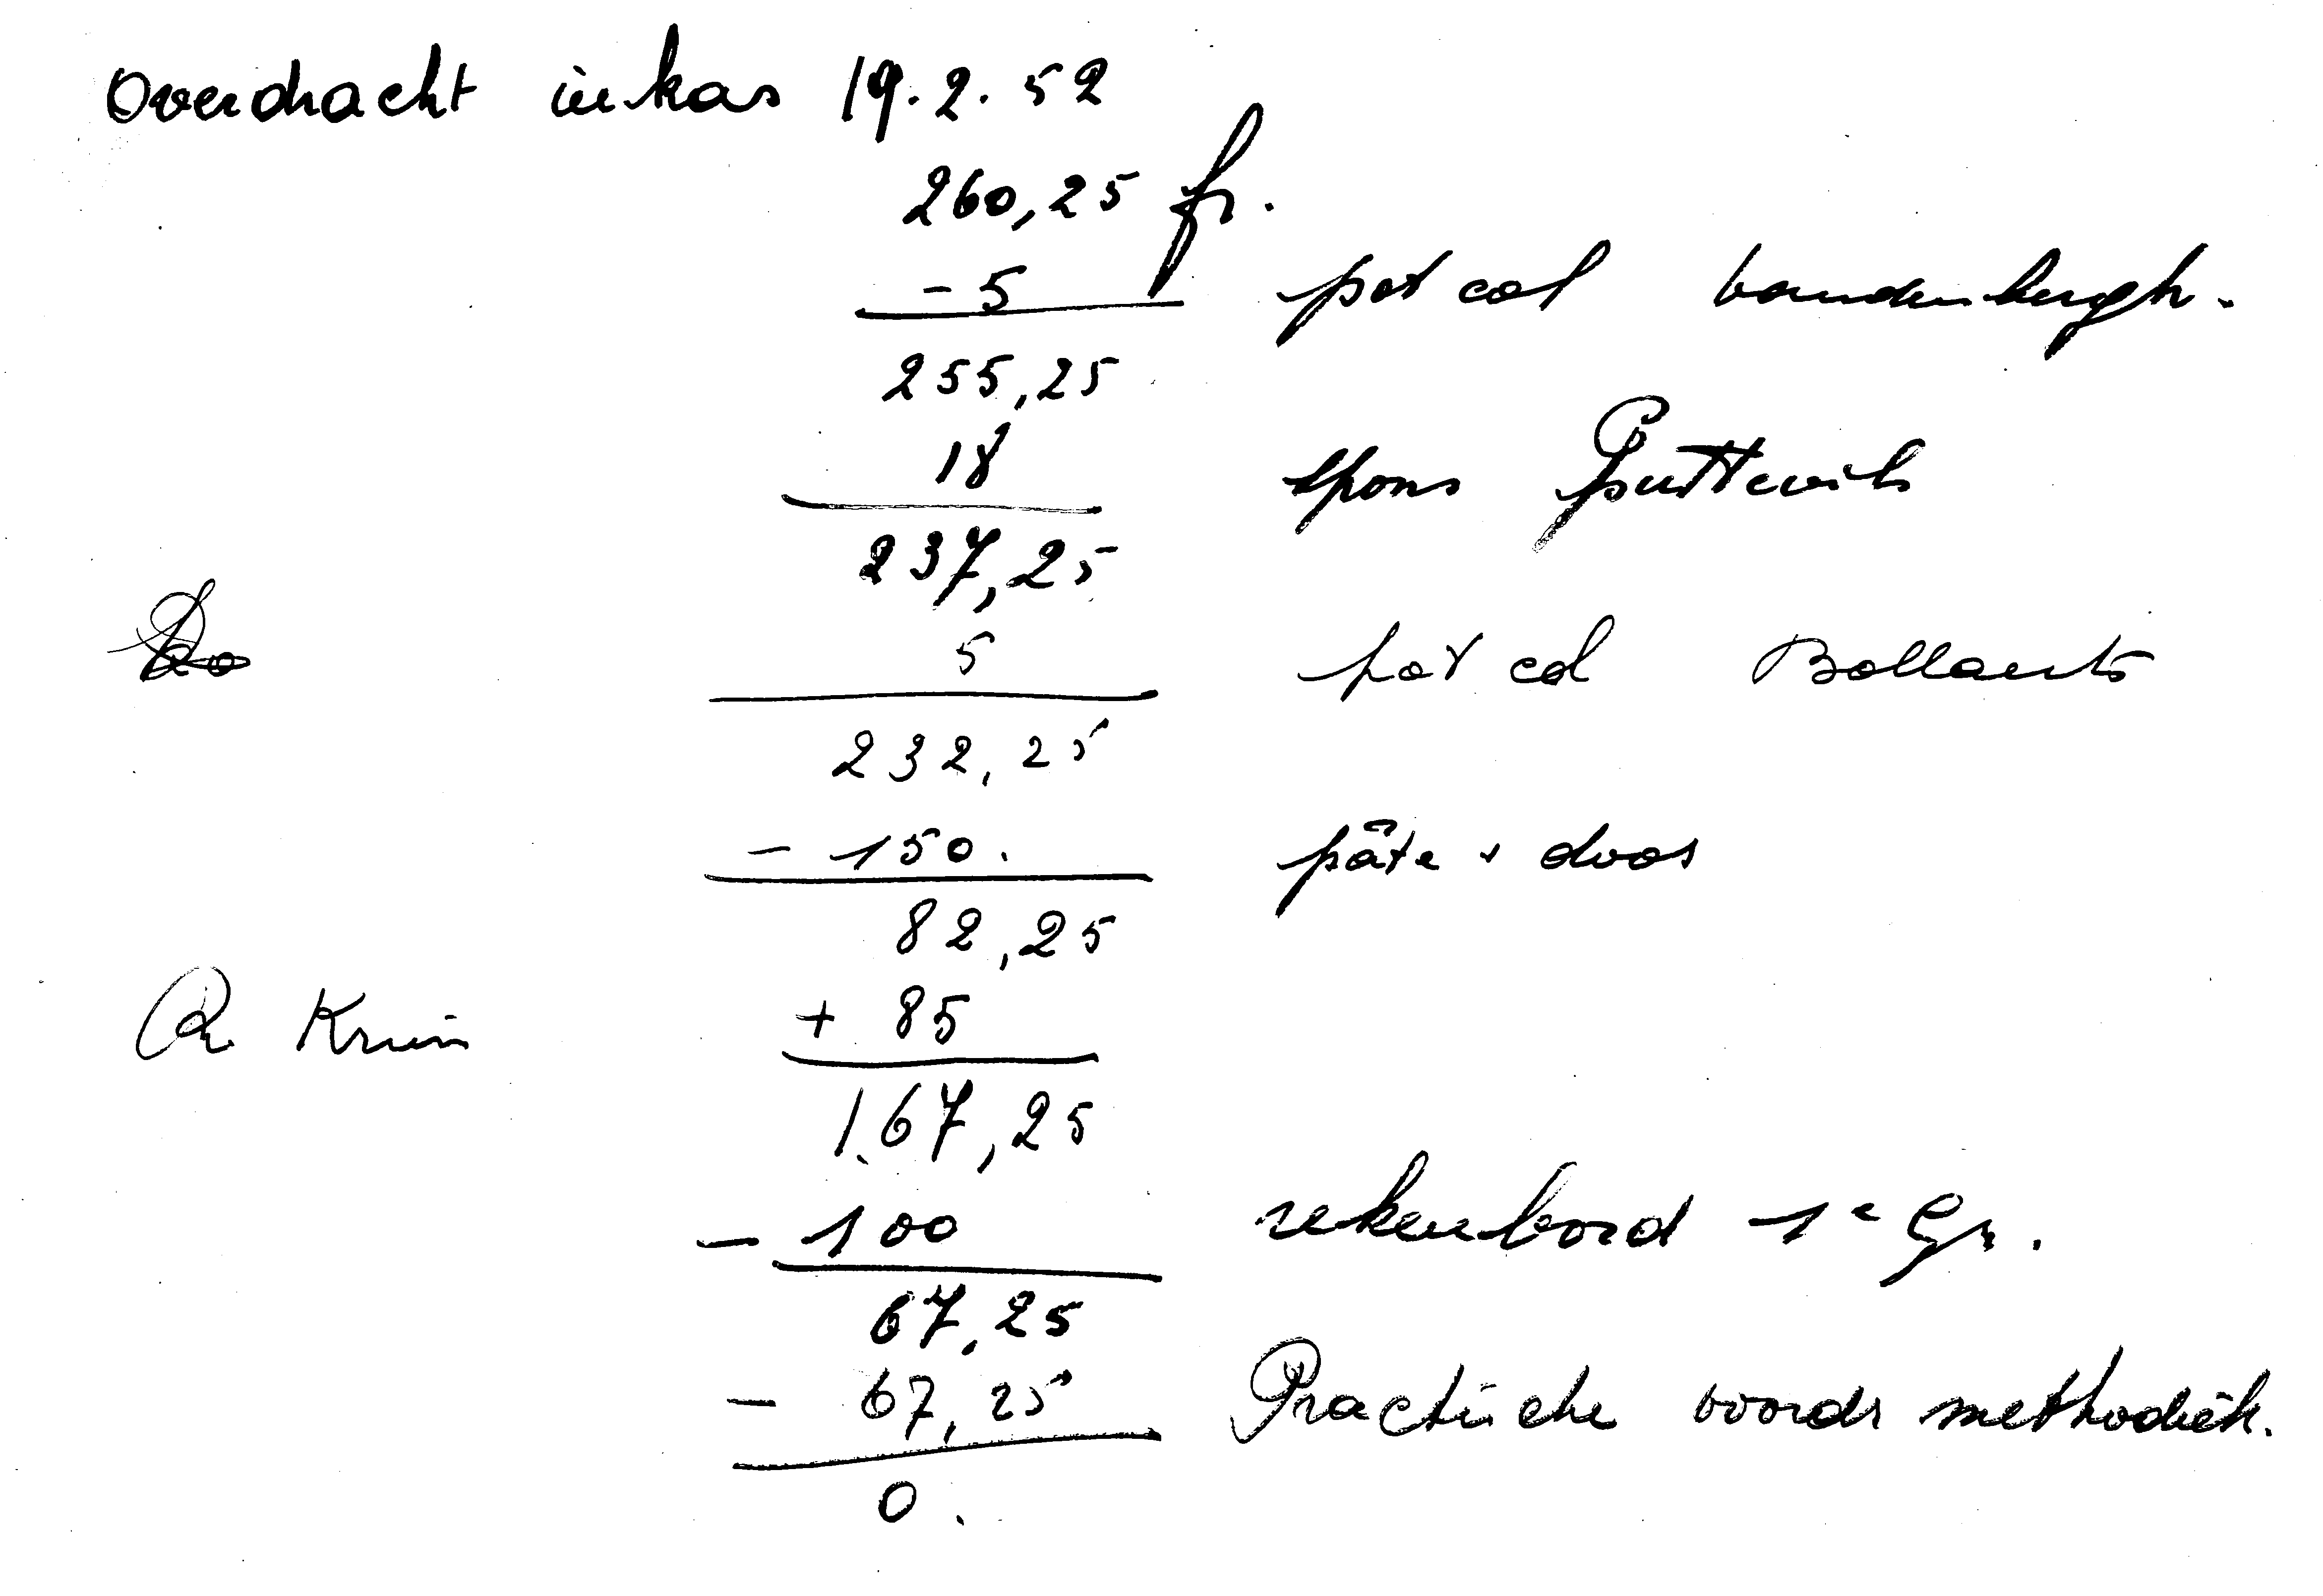 Overdracht in kas 19.2.52
260,25 fr.
- 5 pot col vandenbergh.
255,25
18 spons Puttevils
237,25
5 pot col Bollaerts
232,25
- 150. pâte + doos
82,25
R. Kruin + 85
167,25
- 100 rekenbord 1e Gr.
67,25
- 67,25 Practische woordr methodiek.
0.